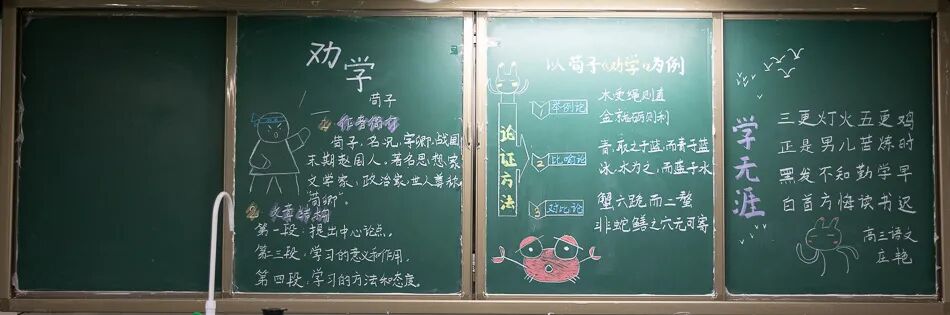 劝学
荀子
1 作者简介
荀子,名况,字卿,战国
末期赵国人。著名思想家
文学家,政治家,世人尊称
"荀卿"。
2 文章结构
第一段:提出中心论点。
第二三段:学习的意义和作用。
第四段:学习的方法和态度
以荀子《劝学》为例
论证方法
1 举例论
木受绳则直
金就砺则利
2 比喻论
青,取之于蓝,而青于蓝
冰,水为之,而蓝于水
3 对比论
蟹六跪而二螯
非蛇鳝之穴无可寄
学无涯
三更灯火五更鸡
正是男儿苦炼时
黑发不知勤学早
白首方悔读书迟
高三语文
庄艳